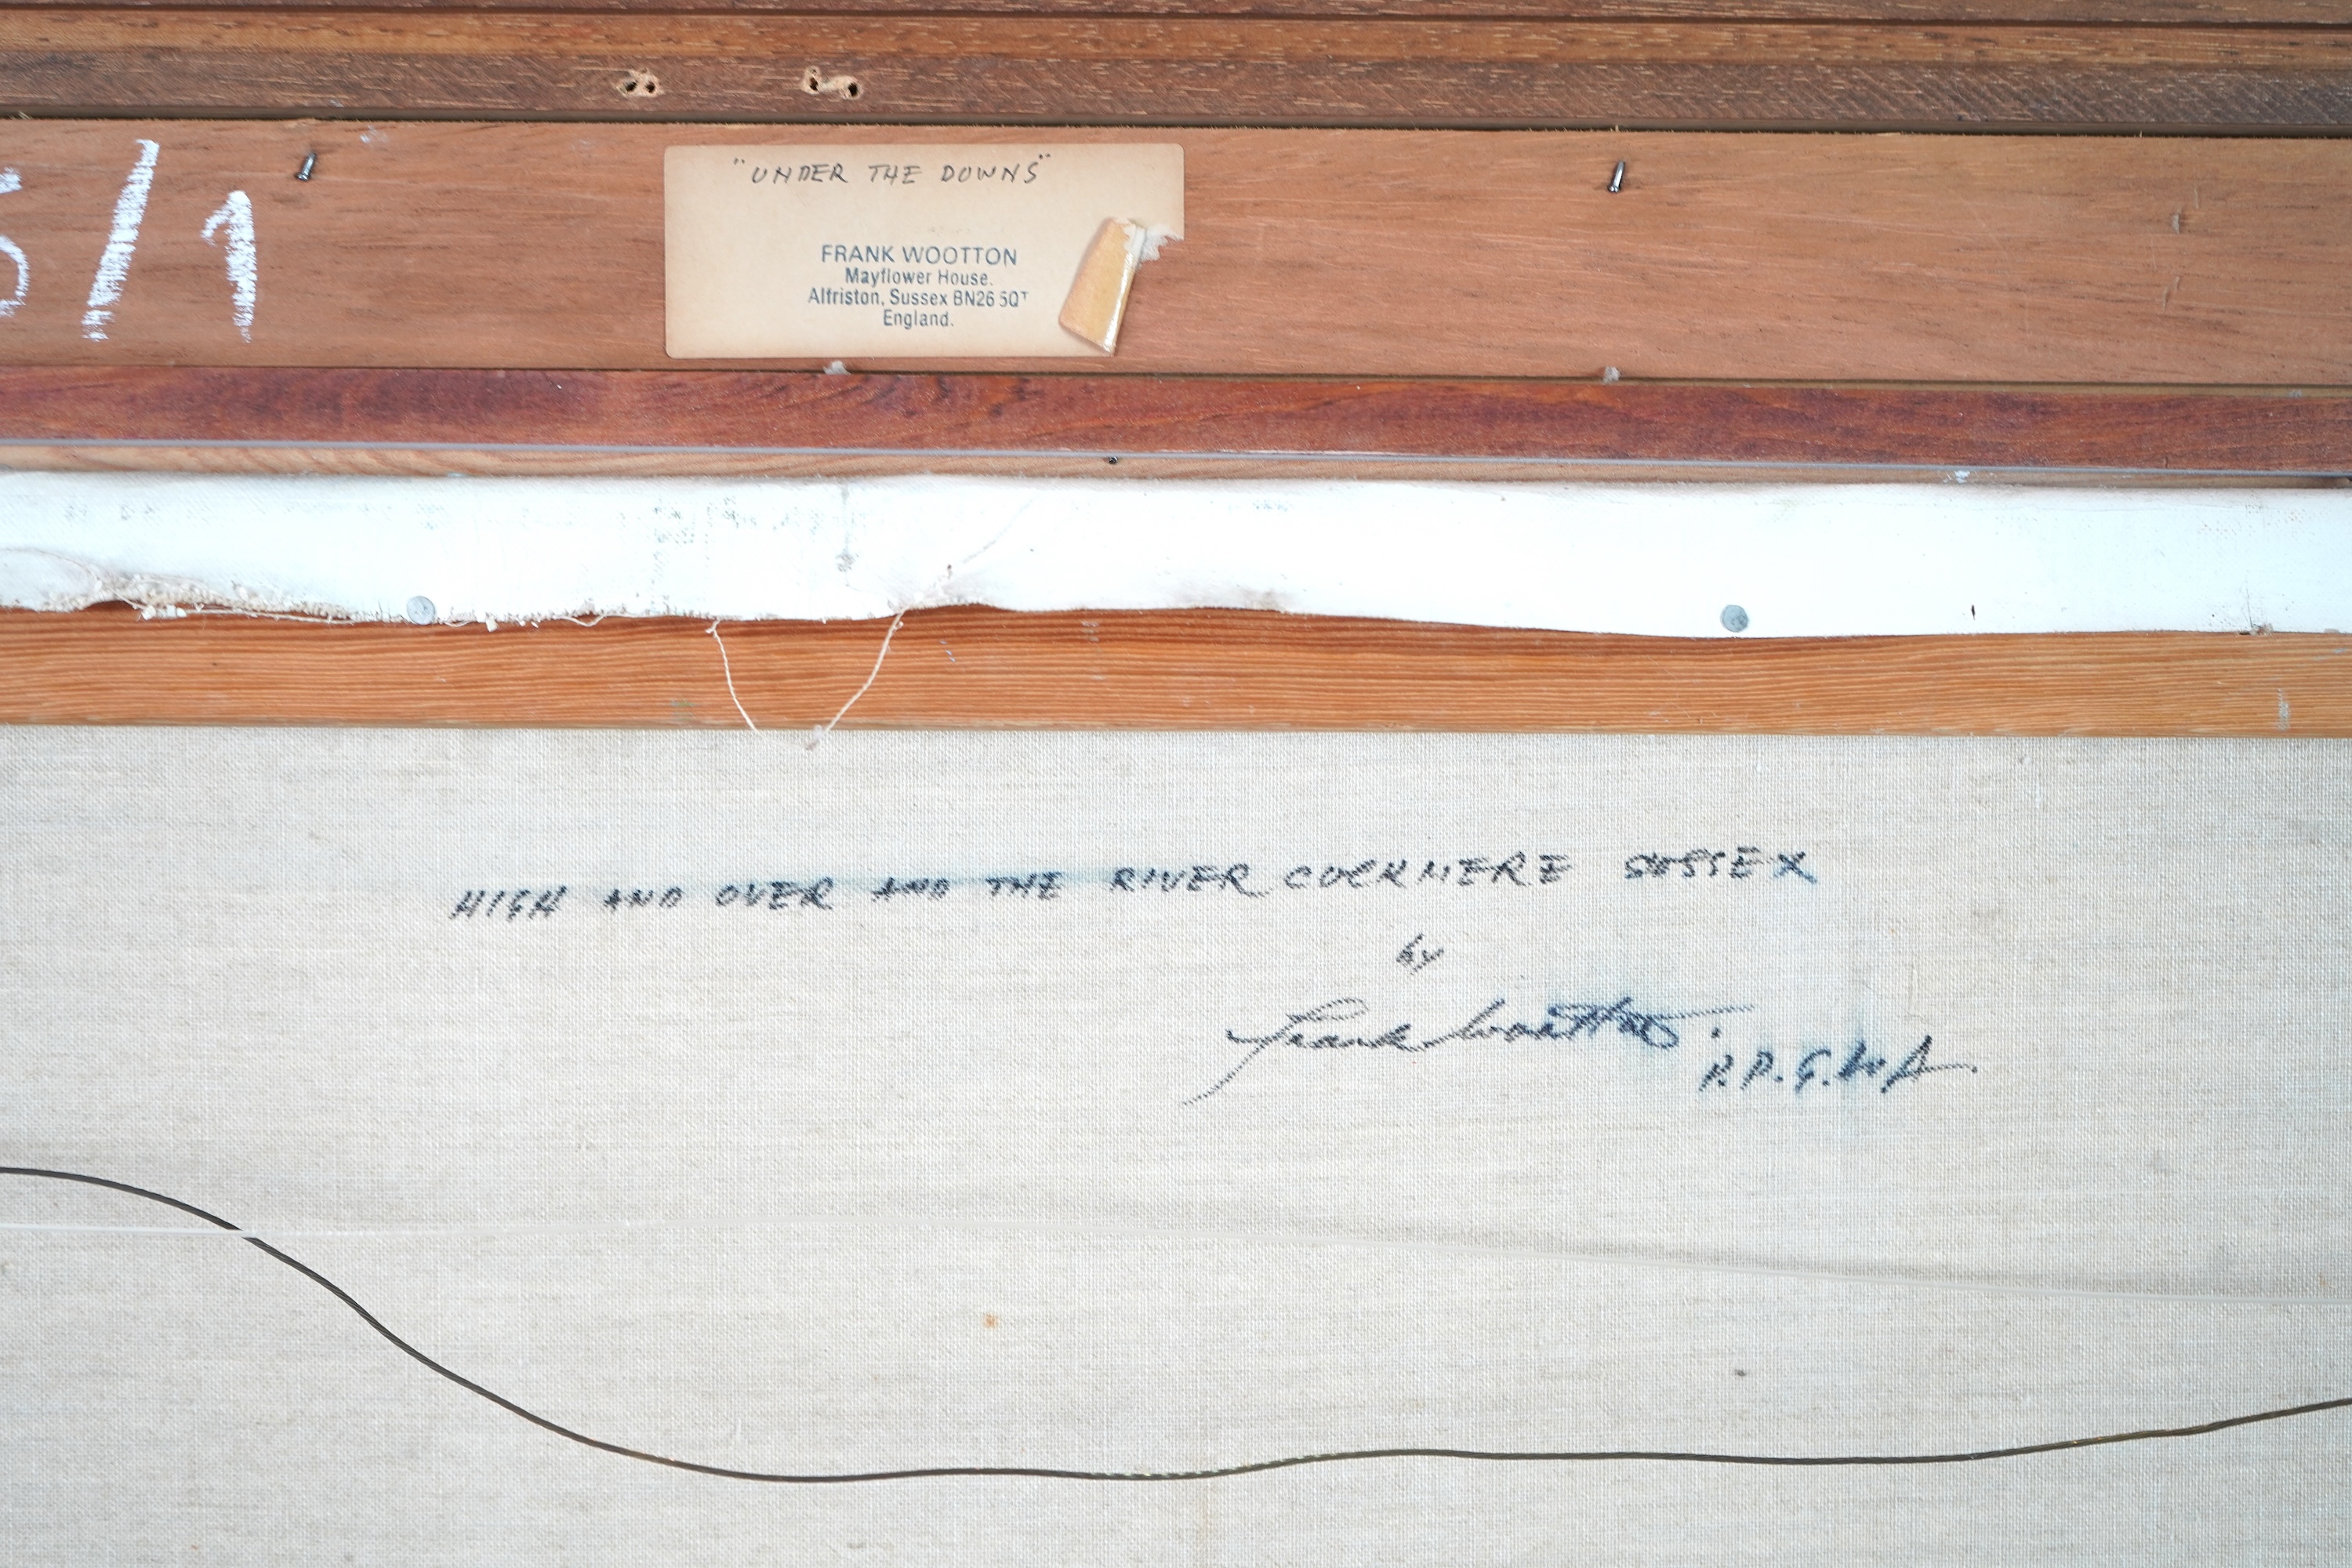 5/1
"UNDER THE DOWNS"
FRANK WOOTTON
Mayflower House.
Alfriston, Sussex BN26 5QT
England.
HIGH AND OVER AND THE RIVER CUCKMERE SUSSEX
by
Frank Wootton.
P.P.G.Av.A.